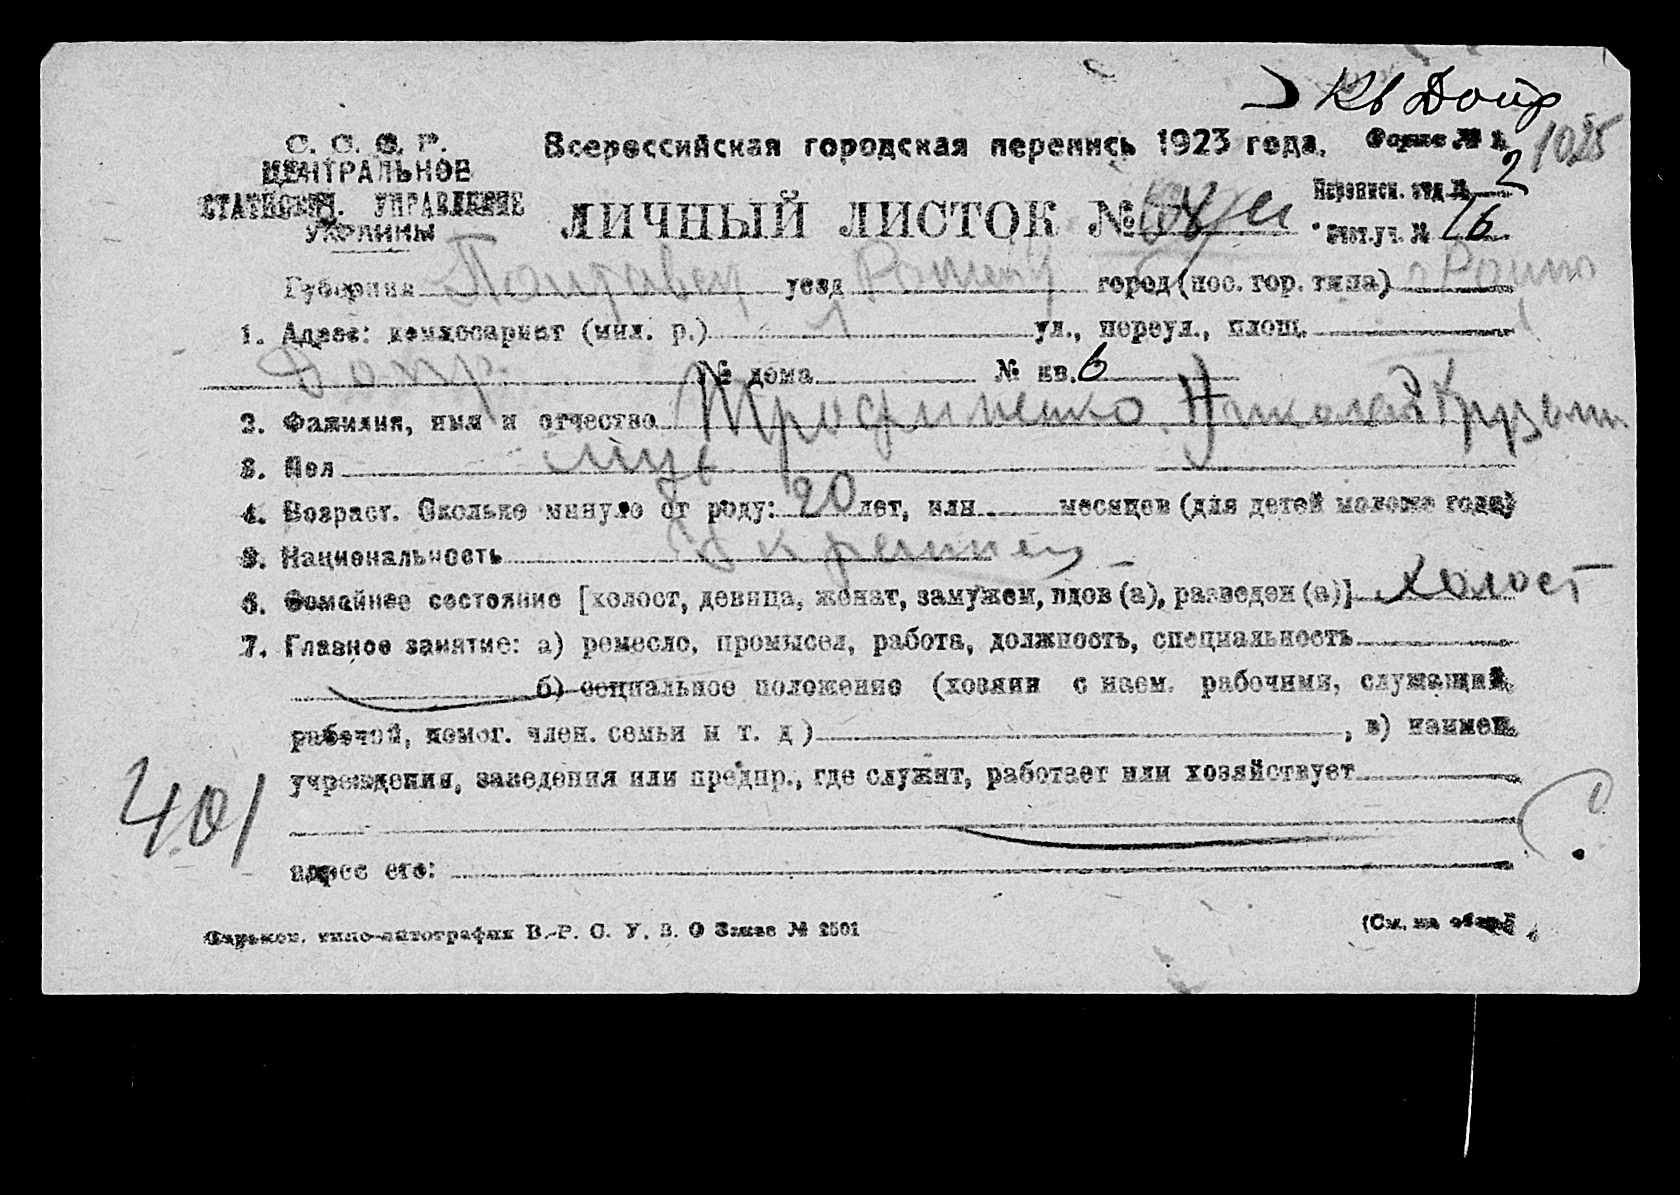 Кв Допр
С. С. С. Р.
ЦЕНТРАЛЬНОЕ
СТАТИСТИЧ. УПРАВЛЕНИЕ
УКРАИНЫ
Всероссийская городская перепись 1923 года.
Форма № 1.
1025
ЛИЧНЫЙ ЛИСТОК №
Переписн. отд № 2
Счет.уч. № 16
Губерния Полтавск уезд город (пос. гор. типа)
1. Адрес: комиссариат (мил. р.) ул., переул., площ.
Допр. № дома № кв. 6
2. Фамилия, имя и отчество Трофименко Николай
3. Пол муж
4. Возраст. Сколько минуло от роду: 20 лет, или месяцев (для детей моложе года)
5. Национальность Украинец
6. Семейное состояние [холост, девица, женат, замужем, вдов (а), разведен (а)] холост
7. Главное занятие: а) ремесло, промысел, работа, должность, специальность
б) социальное положение (хозяин с наем. рабочими, служащий,
рабочий, помог. член. семьи и т. д ) , в) наимен.
учреждения, заведения или предпр., где служит, работает или хозяйствует
401
адрес его:
Харьков. типо-литография В.-Р. С. У. В. О Заказ № 2501
(См. на обор.